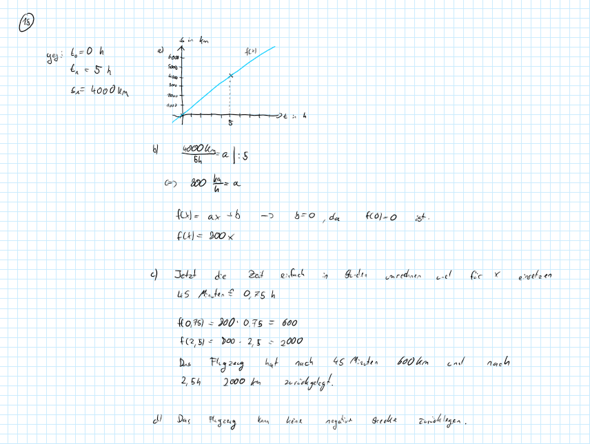 18
geg.: t₀ = 0 h
t₁ = 5 h
s₁ = 4000 km
a)
s in km
f(x)
6000
5000
4000
3000
2000
1000
5
t in h
b) 4000 km / 5h = a |: 5
<=> 800 km/h = a
f(x) = ax + b -> b = 0, da f(0) = 0 ist.
f(x) = 800x
c) Jetzt die Zeit einfach in Stunden umrechnen und für x einsetzen
45 Minuten ≙ 0,75 h
f(0,75) = 800 · 0,75 = 600
f(2,5) = 800 · 2,5 = 2000
Das Flugzeug hat nach 45 Minuten 600 km und nach
2,5h 2000 km zurückgelegt.
d) Das Flugzeug kann keine negative Strecke zurücklegen.